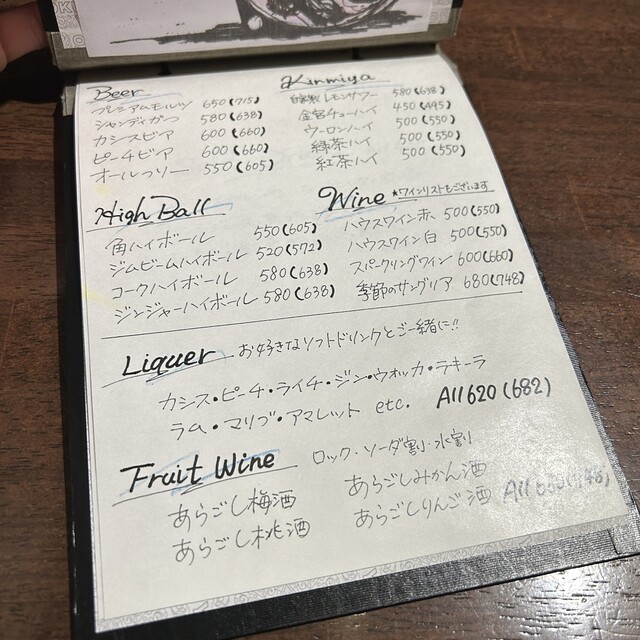 Beer
プレミアムモルツ 650(715)
シャンディガフ 580(638)
カシスビア 600(660)
ピーチビア 600(660)
オールフリー 550(605)
Kinmiya
自家製レモンサワー 580(638)
金宮チューハイ 450(495)
ウーロンハイ 500(550)
緑茶ハイ 500(550)
紅茶ハイ 500(550)
High Ball
角ハイボール 550(605)
ジムビームハイボール 520(572)
コークハイボール 580(638)
ジンジャーハイボール 580(638)
Wine ★ワインリストもございます
ハウスワイン赤 500(550)
ハウスワイン白 500(550)
スパークリングワイン 600(660)
季節のサングリア 680(748)
Liquer お好きなソフトドリンクとご一緒に!!
カシス・ピーチ・ライチ・ジン・ウォッカ・テキーラ
ラム・マリブ・アマレット etc. All 620(682)
Fruit Wine ロック・ソーダ割・水割
あらごし梅酒
あらごし桃酒
あらごしみかん酒
あらごしりんご酒 All